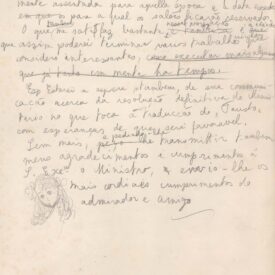 mente acertada para aquella época e data
em que para a qual os salões ficarão reservados.
O que me satisfaz bastante,
que assim poderei terminar varios trabalhos que
considero interessantes, como executar mais alguns
que já tenho em mente ha tempos.
Esp Estarei a espera tambem, de sua
cação acerca da resolução definitiva do
terio no que toca á traducção do "Fausto,
com esperanças de que será favoravel.
Sem mais, peço lhe transmittir tambem
meus agradecimentos e cumprimentos á
S. Exª o Ministro, e envio-lhe os
mais cordiaes cumprimentos do
admirador e amigo